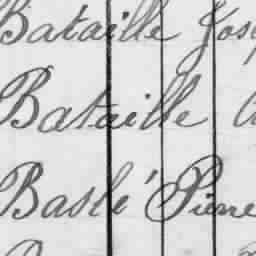 Bataille
Bataille
Baslé Pierre